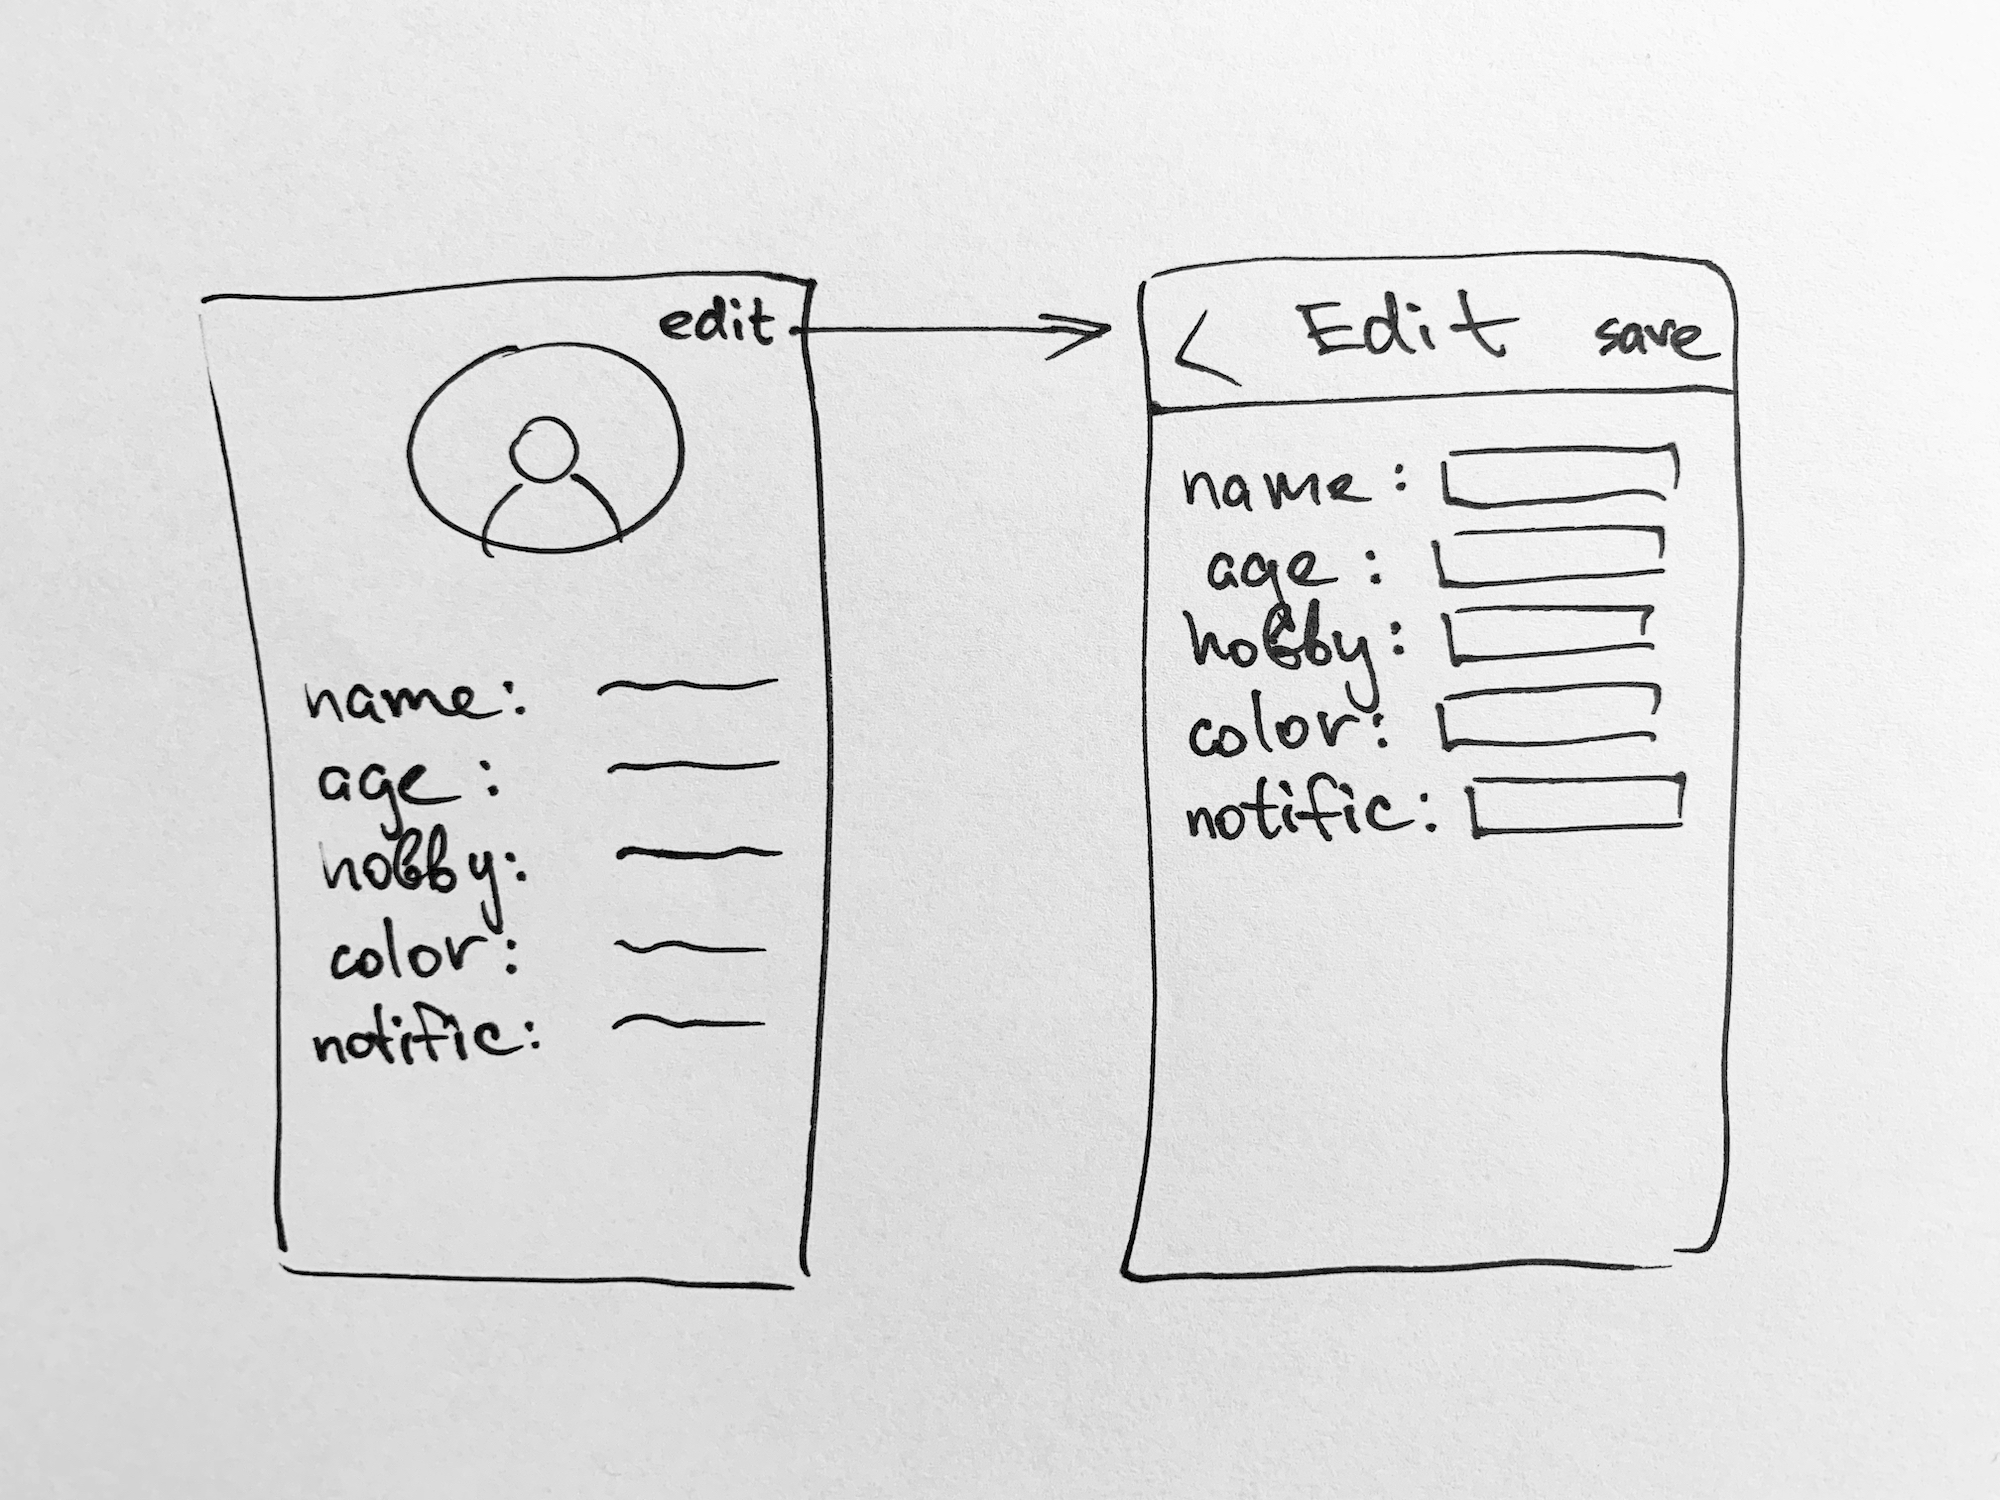 edit
name:
age :
hobby:
color:
notific:
< Edit save
name :
age :
hobby:
color:
notific: